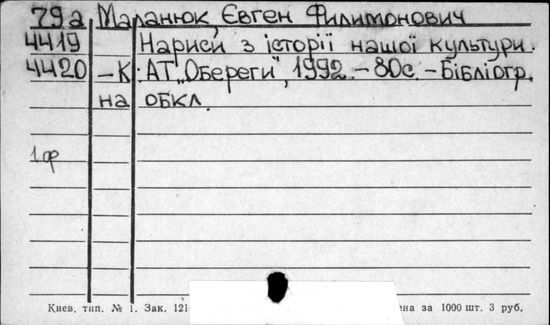 79а Маланюк, Євген Филимонович
4419 Нариси з історії нашої культури.
4420 –К.: АТ „Обереги", 1992.–80с.–Бібліогр.
на обкл.
1 ор
Киев. тип. № 1. Зак. 121- на за 1000 шт. 3 руб.